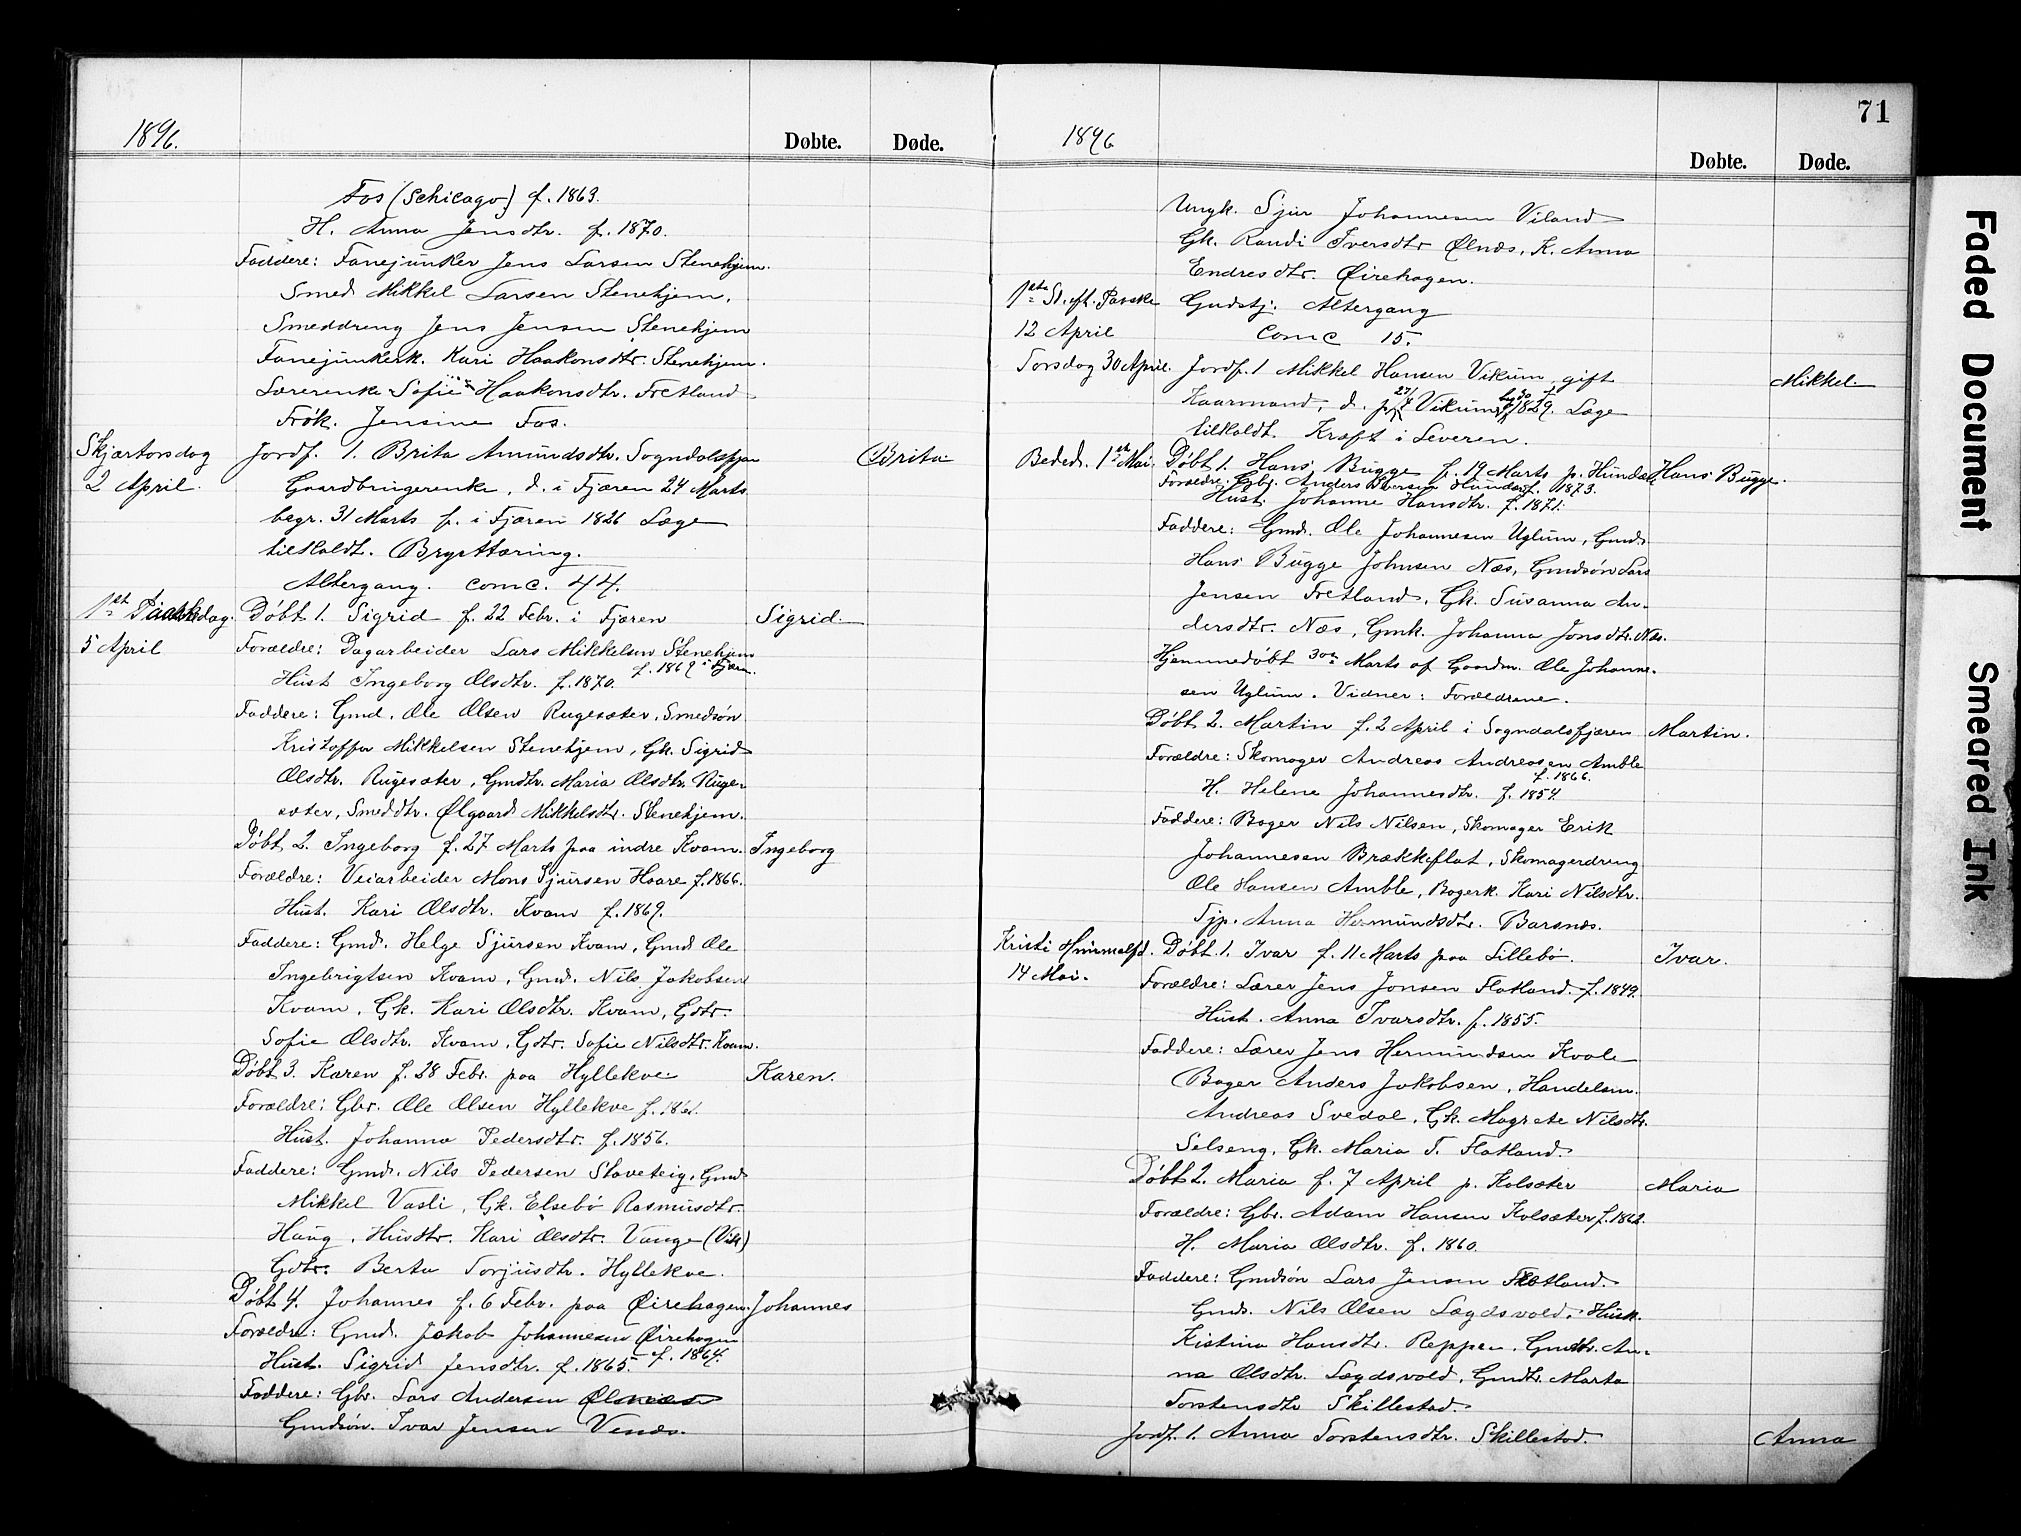 1896.
Døbte. Døde.
Fos (Schicago) f. 1863.
H. Anna Jensdtr. f. 1870.
Faddere: Fanejunker Jens Larsen Stenehjem.
Smed Mikkel Larsen Stenehjem,
Smeddreng Jens Jensen Stenehjem
Fanejunkerk. Kari Haakonsdtr. Stenehjem.
Lærerenke Sofie Haakonsdtr. Fretland
Frøk. Jensine Fos.
Skjærtorsdag Jordf. 1. Brita Amundsdtr. Sogndalsfjær Brita
2 April. Gaardbrugerenke, d. i Fjæren 24 Marts
begr. 31 Marts f. i Fjæren 1826 Læge
tilkaldt. Brysttæring.
Altergang. comc. 44.
1st Paaskedag. Døbt 1. Sigrid f. 22 Febr. i Fjæren Sigrid.
5 April Forældre: Dagarbeider Lars Mikkelsen Stenehjem
f. 1869 i Fjæren.
Hust. Ingeborg Olsdtr. f. 1870.
Faddere: Gmd. Ole Olsen Rugesæter, Smedsøn
Kristoffer Mikkelsen Stenehjem, Gk. Sigrid
Olsdtr. Rugesæter, Gmdtr. Maria Olsdtr. Ruge-
sæter, Smeddtr. Ølgaard Mikkelsdtr. Stenehjem.
Døbt 2. Ingeborg f. 27 Marts paa indre Kvam. Ingeborg
Forældre: Veiarbeider Mons Sjursen Haare f. 1866.
Hust. Kari Olsdtr. Kvam f. 1869.
Faddere: Gmd. Helge Sjursen Kvam, Gmd. Ole
Ingebrigtsen Kvam, Gmd. Nils Jakobsen
Kvam, Gk. Kari Olsdtr. Kvam, Gdtr.
Sofie Olsdtr. Kvam, Gdtr. Sofie Nilsdtr. Kvam.
Døbt 3. Karen f. 28 Febr. paa Hyllekve. Karen.
Forældre: Gbr. Ole Olsen Hyllekve f. 1861.
Hust. Johanna Pedersdtr. f. 1856.
Faddere: Gmd. Nils Pedersen Slaveteig, Gmd
Mikkel Vasli, Gk. Elsebø Rasmusdtr.
Haug, Husdtr. Kari Olsdtr. Vange (Vik)
Gdtr. Berta Torjusdtr. Hyllekve.
Døbt 4. Johannes f. 6 Febr. paa Øirehagen. Johannes
Forældre: Gmd. Jakob Johannesen Øirehagen
f. 1864.
Hust. Sigrid Jensdtr. f. 1865.
Faddere: Gbr. Lars Andersen Ølnæs
Gmdsøn. Ivar Jensen Venæs.
71
1896
Døbte. Døde.
Ungk. Sjur Johannesen Viland
Gk. Randi Iversdtr Ølnæs, K. Anna
Endresdtr. Øirehagen.
1ste S. eft. Paaske Gudstj. Altergang
12 April comc 15.
Torsdag 30 April. Jordf. 1 Mikkel Hansen Vikum, gift Mikkel.
Kaarmand, d. p. 27/4 Vikum, 1829. Læge
tilkaldt. Kræft i Leveren.
Beded. 1ste Mai. Døbt 1. Hans Bugge f. 19 Marts p. Hundere Hans Bugge.
Forældre: Gbr. Anders Hundere f. 1873.
Hust. Johanne Hansdtr. f. 1871.
Faddere: Gmd. Ole Johannesen Uglum, Gmd.
Hans Bugge Johnsen Næs, Gmdsøn Lars
Jensen Fretland, Gk. Susanna An-
dersdtr. Næs, Gmk. Johanna Jonsdtr. Næs.
Hjemmedøbt 30te Marts af Gaardm. Ole Johanne-
sen Uglum. Vidner: Forældrene.
Døbt 2. Martin f. 2 April i Sogndalsfjæren Martin.
Forældre: Skomager Andreas Andreasen Amble
f. 1866.
H. Helene Johannesdtr. f. 1854
Faddere: Bager Nils Nilsen, Skomager Erik
Johannesen Brækkeflat, Skomagerdreng
Ole Hansen Amble, Bagerk. Kari Nilsdtr.
Tjp. Anna Hermundsdtr. Barsnæs.
Kristi Himmelfd. Døbt 1. Ivar f. 11 Marts paa Lillebø. Ivar.
14 Mai. Forældre: Lærer Jens Jonsen Flatland. f. 1849.
Hust. Anna Ivarsdtr. f. 1855.
Faddere: Lærer Jens Hermundsen Kvale
Bager Anders Jakobsen, Handelsm.
Andreas Svedal, Gk. Magrete Nilsdtr.
Selseng, Gk. Maria T. Flatland.
Døbt 2. Maria f. 7 April p. Kolsæter Maria
Forældre: Gbr. Adam Hansen Kolsæter f. 1862.
H. Maria Olsdtr. f. 1860.
Faddere: Gmdsøn Lars Jensen Flatland.
Gmd. Nils Olsen Lægdsvold, Husk.
Kistina Hansdtr. Reppen, Gmdtr. An-
na Olsdtr. Lægdsvold, Gmdtr. Marta
Torstensdtr Skillestad.
Jordf. 1. Anna Torstensdtr. Skillestad. Anna
Faded Document
Smeared Ink